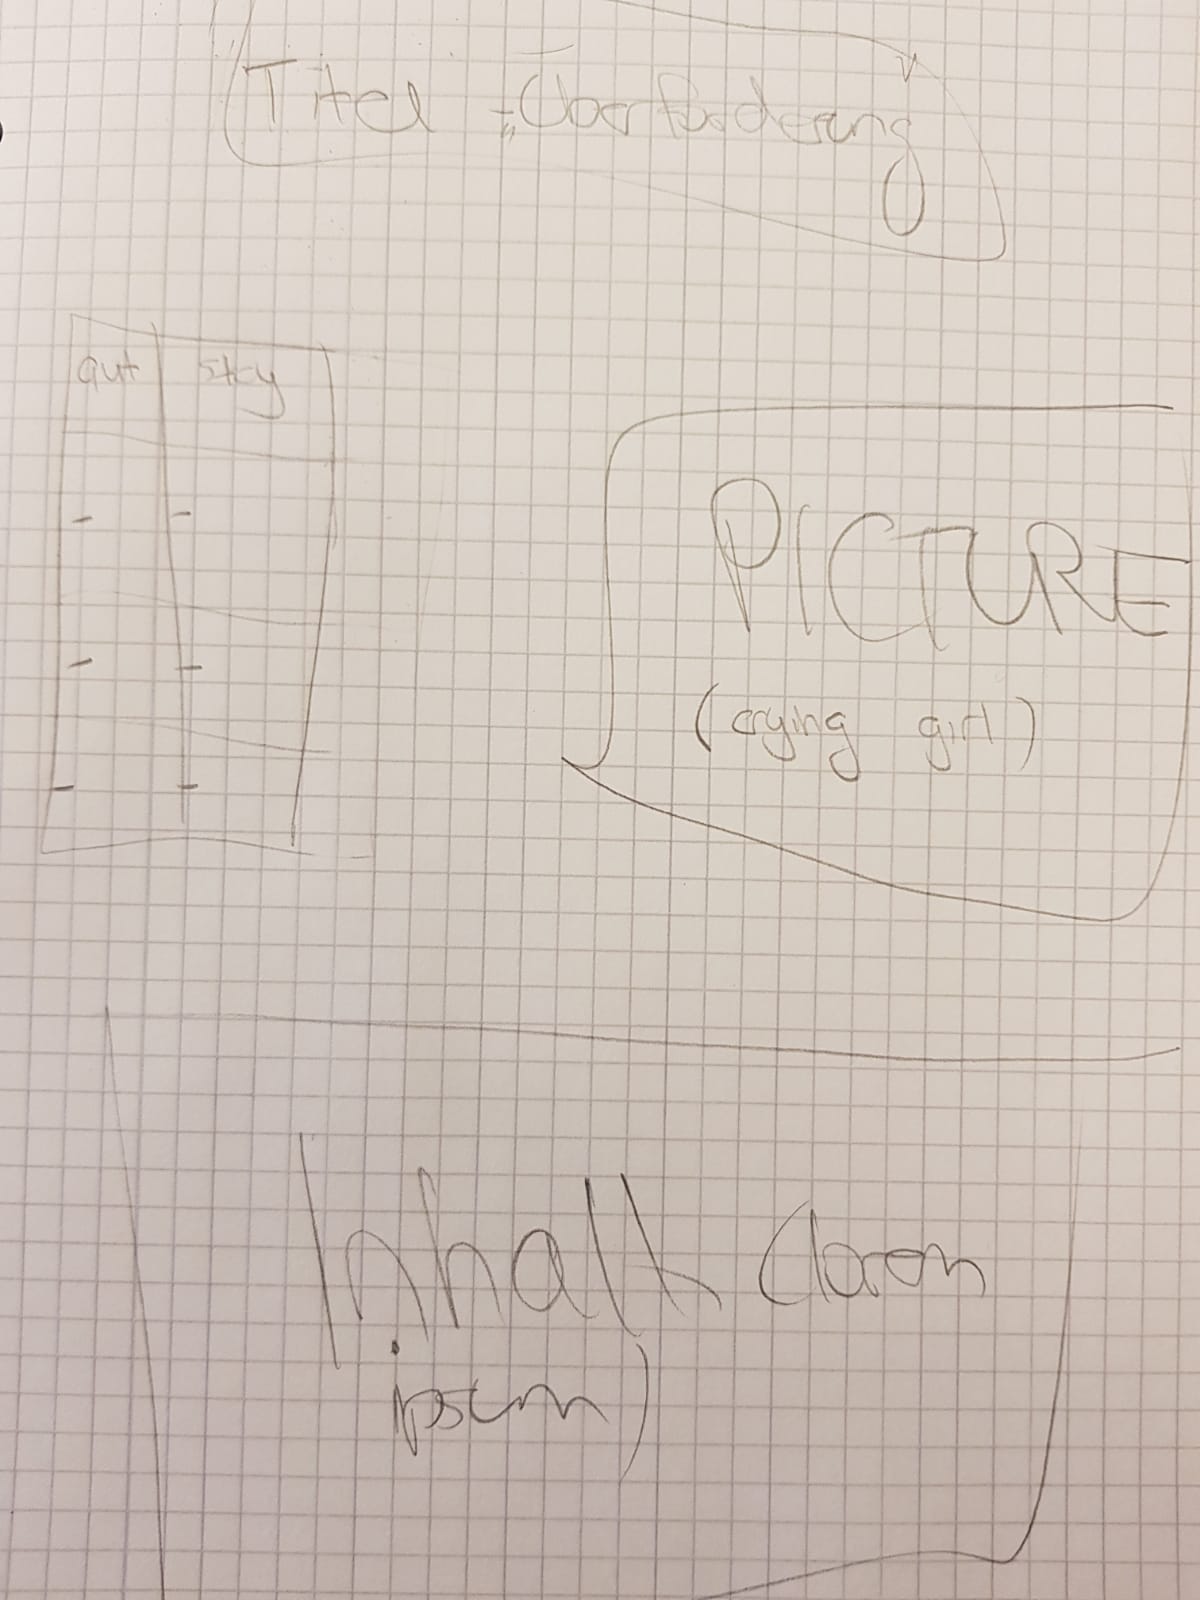 Titel : „Überforderung
gut
PICTURE
(crying girl)
Inhalt (lorem
ipsum)